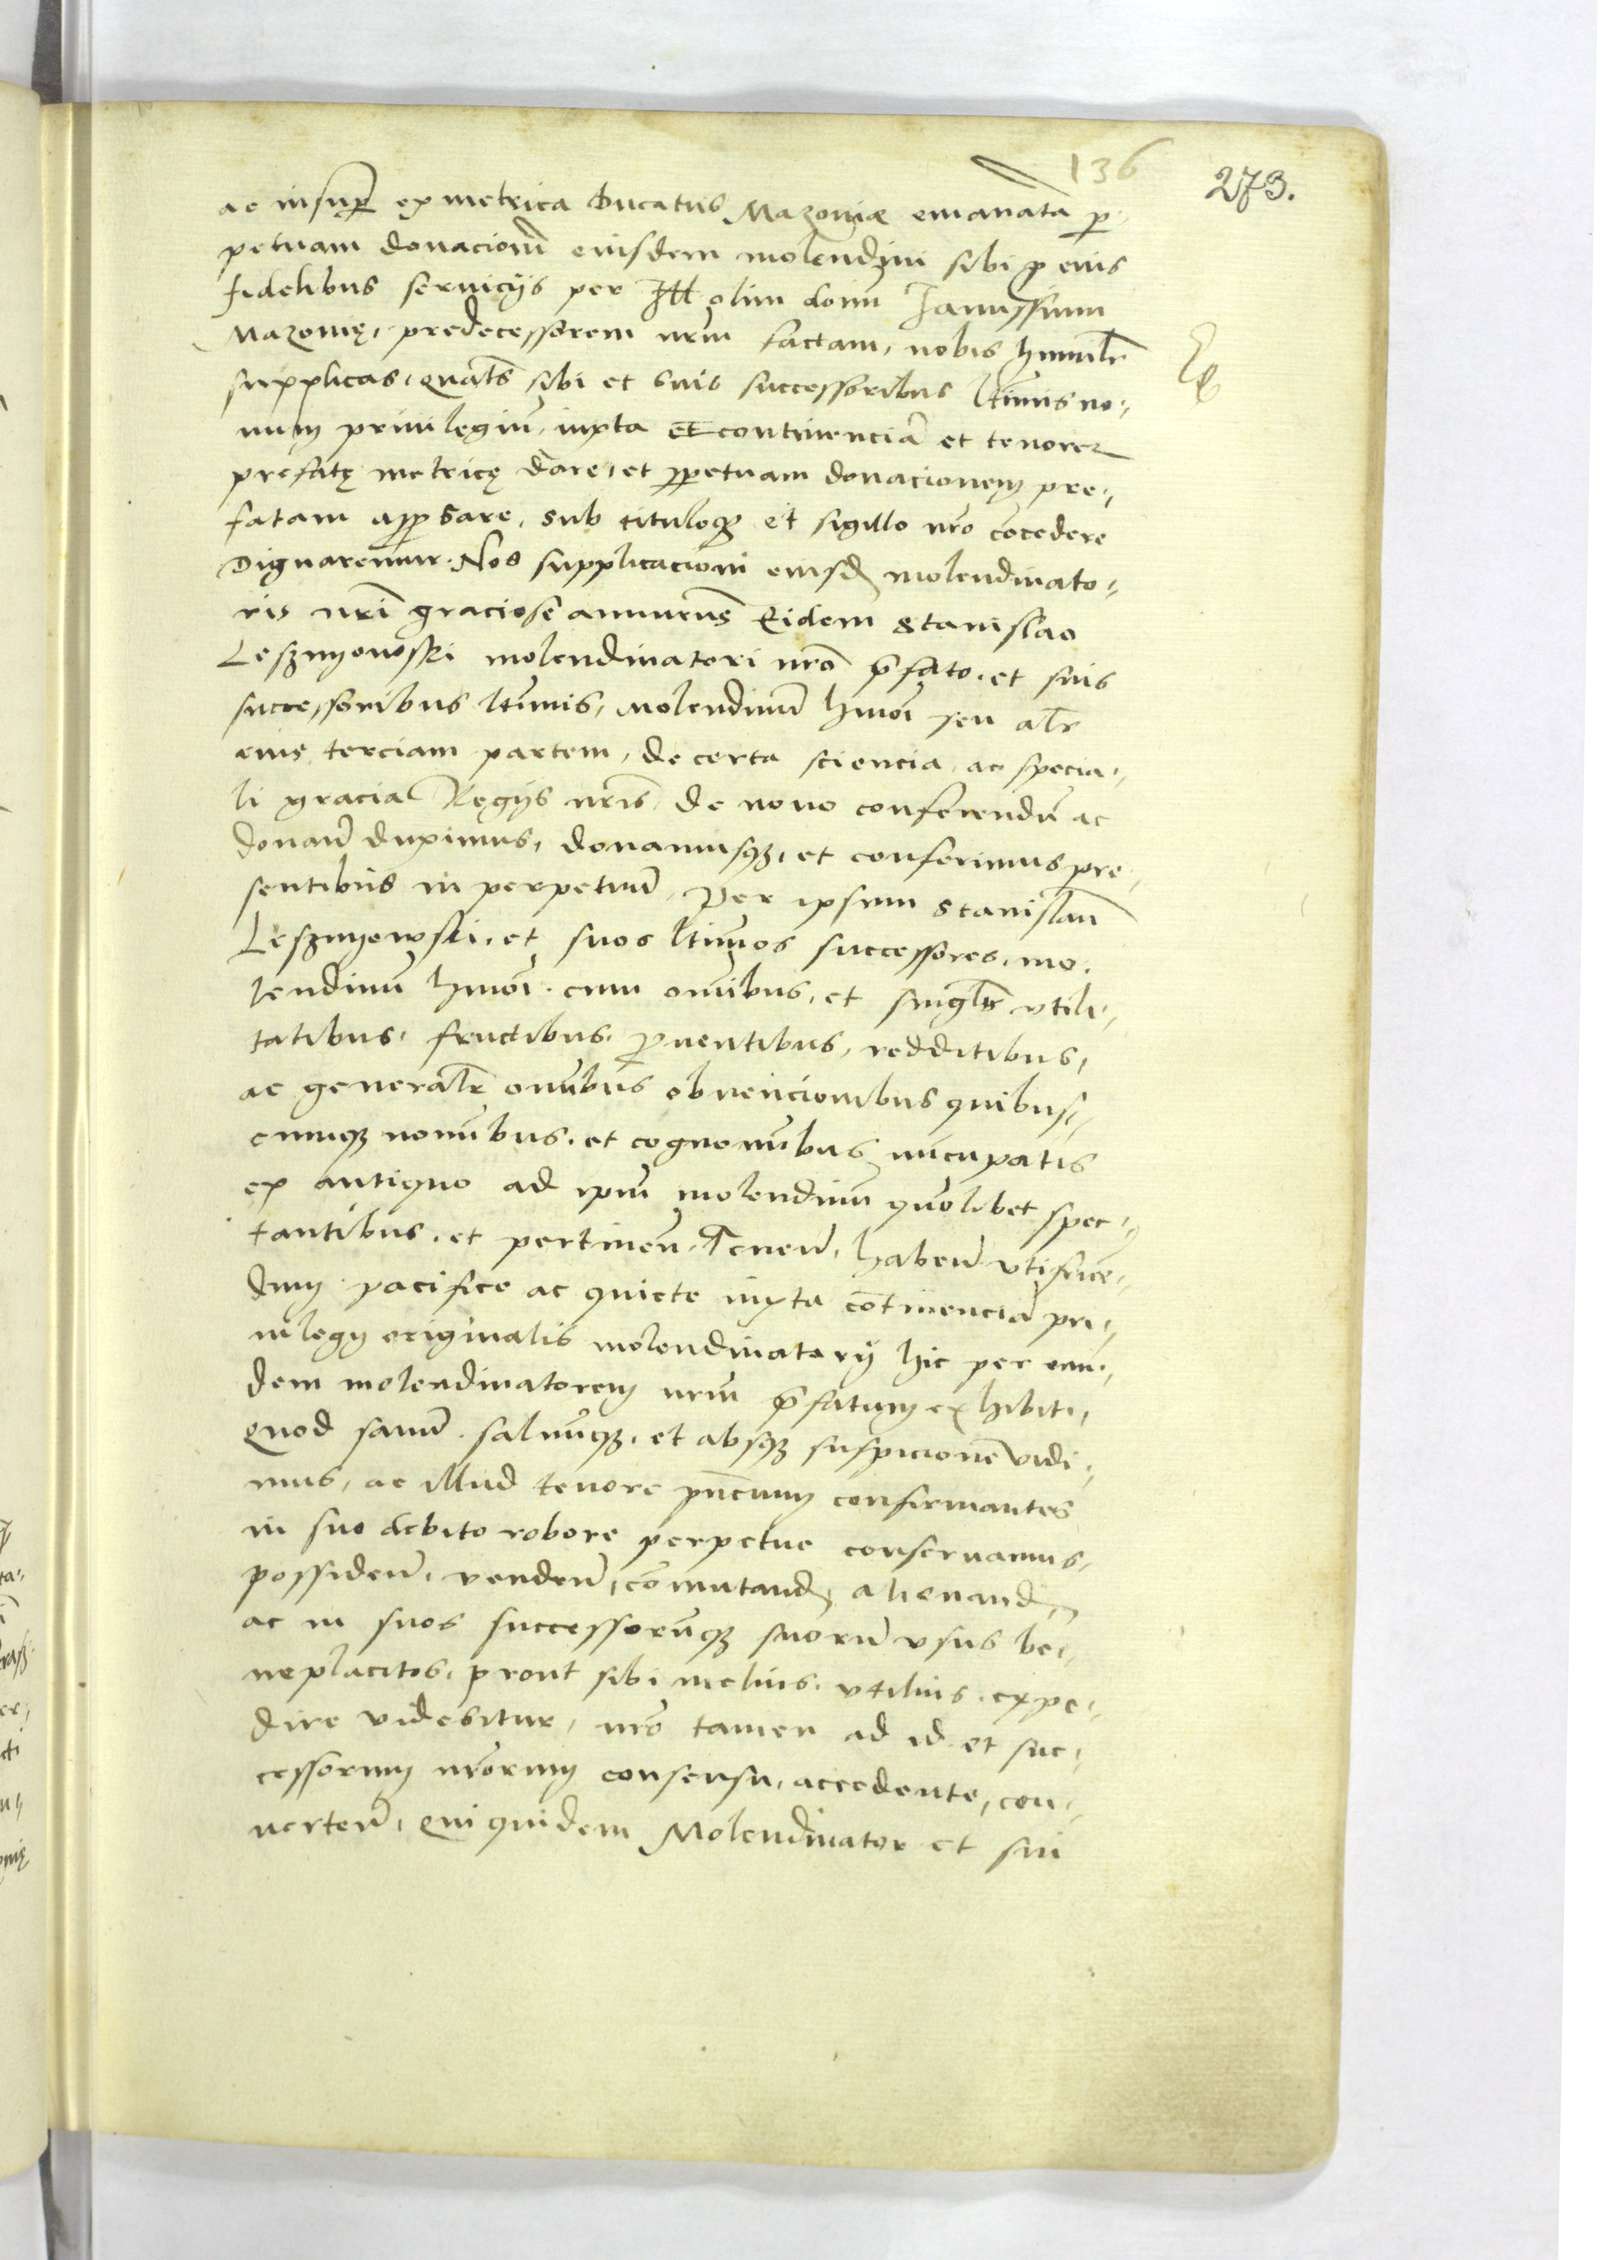 136
273.
ac insup ex metrica Ducatus Mazoviæ emanatā p-
petuam donacionē eiusdem molendini sibi p eius
fidelibus servicijs per Ill olim dom̄ Janussium
Mazovię, predecessorem nr̄m factam, nobis humilr̄
supplicās, quatn̄s sibi et suis successoribus ltīmis no-
uum priuilegiū, iuxta et continenciā et tenorem
prefatę metricę dare, et ppetuam donacionem pre-
fatam appbare, sub tituloq et sigillo nr̄o cōcedere
Dignaremur. Nos supplicacioni eiusd molendinato-
ris nr̄i graciose annuen̄s Eidem Stanislao
Leszmyowski molendinatori nr̄o p̄fato, et suis
successoribus ltīmis, Molendinū hmōi seu alr̄
eius terciam partem, de certa sciencia, ac specia-
li gracia Regijs nr̄is, de nouo conferendū ac
donan̄ duximus, donamusq, et conferimus pre-
sentibus in perpetuū, Per ipsum Stanislaū
Leszmyowski, et suos ltīmos successores, mo-
lendinū hmōi, cum omībus, et singlr̄ vtili-
tatibus, fructibus, puentibus, redditibus,
ac generalr̄ omībus obuencionibus quibus-
cumq nomībus, et cognomībus nūcupatis
ex antiquo ad ipm̄ molendinū quolibet spec-
tantibus, et pertinen̄, Tenen̄, haben̄ vtifruē-
dum pacifice ac quiete iuxta cōtinenciā pri-
uilegij originalis molendinatorij hic per eun-
dem molendinatorem nr̄m p̄fatum exhibiti,
quod sanū, saluūq, et absq suspicione vidi-
mus, ac illud tenore pn̄cium confirmantes
in suo debito robore perpetue conseruamus,
possiden̄, venden̄, cōmutand, alienand,
ac in suos successorūq suorū vsus be-
neplacitos, prout sibi melius, vtilius, expe-
dire videbitur, nr̄o tamen ad id et suc-
cessorum nr̄orum consensu, accedente, con-
uerten̄, Qui quidem Molendinator et sui